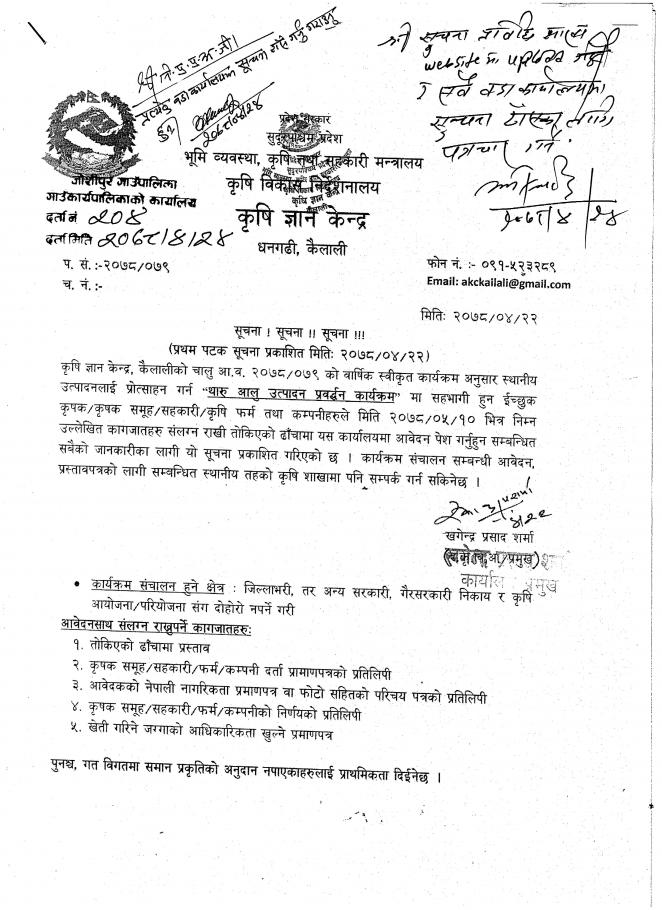 श्री प्र.प्र.अ.जी।
प्रत्येक वडा कार्यालयमा सूचना गर्नु गराउनु
२०७८/४/२४
श्री सूचना प्रविधि
website मा upload गर्ने
र सबै वडा कार्यालयमा
सूचना टाँस्न लागि
पत्राचार गर्ने।
२०७८/४/२४
प्रदेश सरकार
सुदूरपश्चिम प्रदेश
भूमि व्यवस्था, कृषि तथा सहकारी मन्त्रालय
जोशीपुर गाउँपालिका
कृषि विकास निर्देशनालय
गाउँकार्यपालिकाको कार्यालय
दर्ता नं २०४
कृषि ज्ञान केन्द्र
दर्ता मिति २०७८/४/२४
धनगढी, कैलाली
प. सं. :-२०७८/०७९
फोन नं. :- ०९१-५२३२८९
च. नं. :-
Email: akckailali@gmail.com
मितिः २०७८/०४/२२
सूचना ! सूचना !! सूचना !!!
(प्रथम पटक सूचना प्रकाशित मितिः २०७८/०४/२२)
कृषि ज्ञान केन्द्र, कैलालीको चालु आ.व. २०७८/०७९ को वार्षिक स्वीकृत कार्यक्रम अनुसार स्थानीय
उत्पादनलाई प्रोत्साहन गर्न "थारु आलु उत्पादन प्रवर्द्धन कार्यक्रम" मा सहभागी हुन ईच्छुक
कृषक/कृषक समूह/सहकारी/कृषि फर्म तथा कम्पनीहरुले मिति २०७८/०५/१० भित्र निम्न
उल्लेखित कागजातहरु संलग्न राखी तोकिएको ढाँचामा यस कार्यालयमा आवेदन पेश गर्नुहुन सम्बन्धित
सबैको जानकारीका लागी यो सूचना प्रकाशित गरिएको छ । कार्यक्रम संचालन सम्बन्धी आवेदन,
प्रस्तावपत्रको लागी सम्वन्धित स्थानीय तहको कृषि शाखामा पनि सम्पर्क गर्न सकिनेछ ।
खगेन्द्र प्रसाद शर्मा
कार्यालय प्रमुख
• कार्यक्रम संचालन हुने क्षेत्र : जिल्लाभरी, तर अन्य सरकारी, गैरसरकारी निकाय र कृषि
आयोजना/परियोजना संग दोहोरो नपर्ने गरी
आवेदनसाथ संलग्न राख्नुपर्ने कागजातहरुः
१. तोकिएको ढाँचामा प्रस्ताव
२. कृषक समूह/सहकारी/फर्म/कम्पनी दर्ता प्रामाणपत्रको प्रतिलिपी
३. आवेदकको नेपाली नागरिकता प्रमाणपत्र वा फोटो सहितको परिचय पत्रको प्रतिलिपी
४. कृषक समूह/सहकारी/फर्म/कम्पनीको निर्णयको प्रतिलिपी
५. खेती गरिने जग्गाको आधिकारिकता खुल्ने प्रमाणपत्र
पुनश्च, गत विगतमा समान प्रकृतिको अनुदान नपाएकाहरुलाई प्राथमिकता दिईनेछ ।